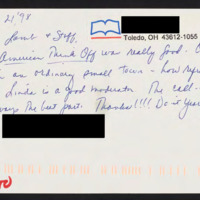 21, '98
Lamb & Staff,
Toledo, OH 43612-1055
American Think Off was really good.
in an ordinary small town - how
Linda is a good moderator. The call-
the best part. Thanks!!!! Do it